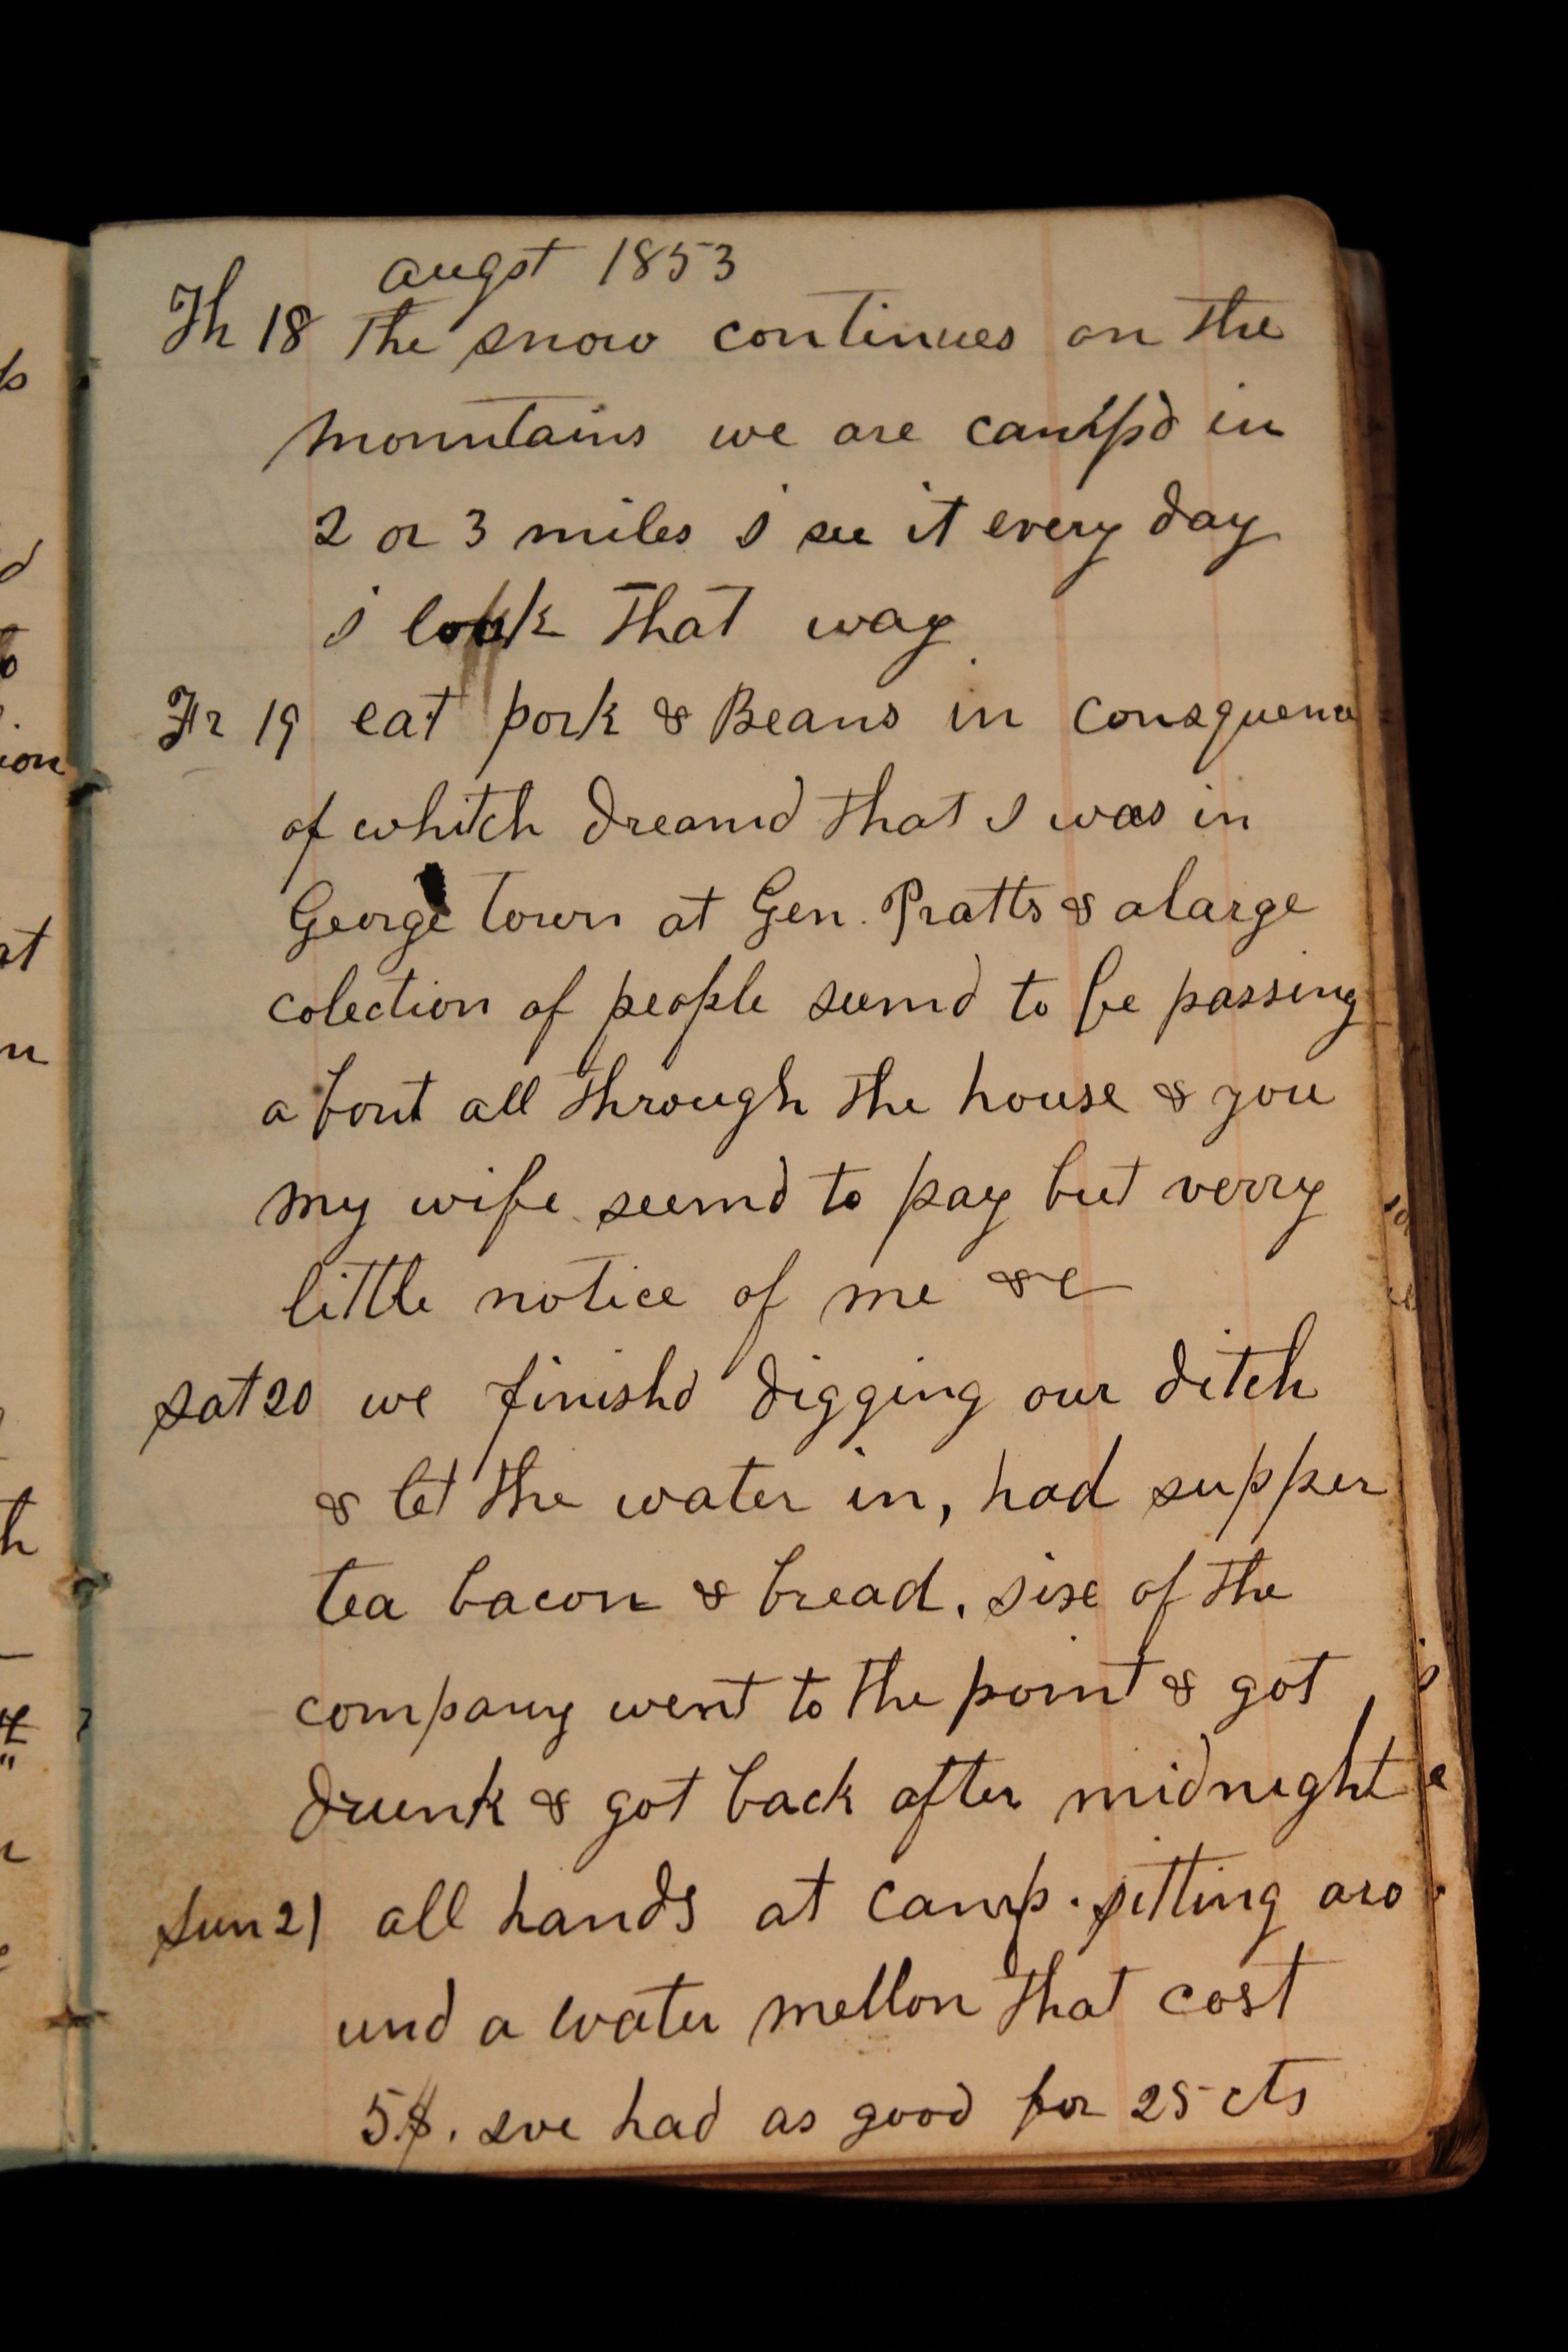 augst 1853
Th 18 The snow continues on the
mountains we are camp'd in
2 or 3 miles I see it every day
I look that way
Fr 19 eat pork & Beans in consquence
of whitch dreamd that I was in
George town at Gen. Pratts & alarge
colection of people seemd to be passing
a bout all through the house & you
my wife seemd to pay but verry
little notice of me &c
Sat 20 we finishd digging our ditch
& let the water in, had supper
tea bacon & bread. sise of the
company went to the point & got
drunk & got back after midnight
Sun 21 all hands at camp. sitting aro
und a water mellon that cost
5$. Ive had as good for 25 cts